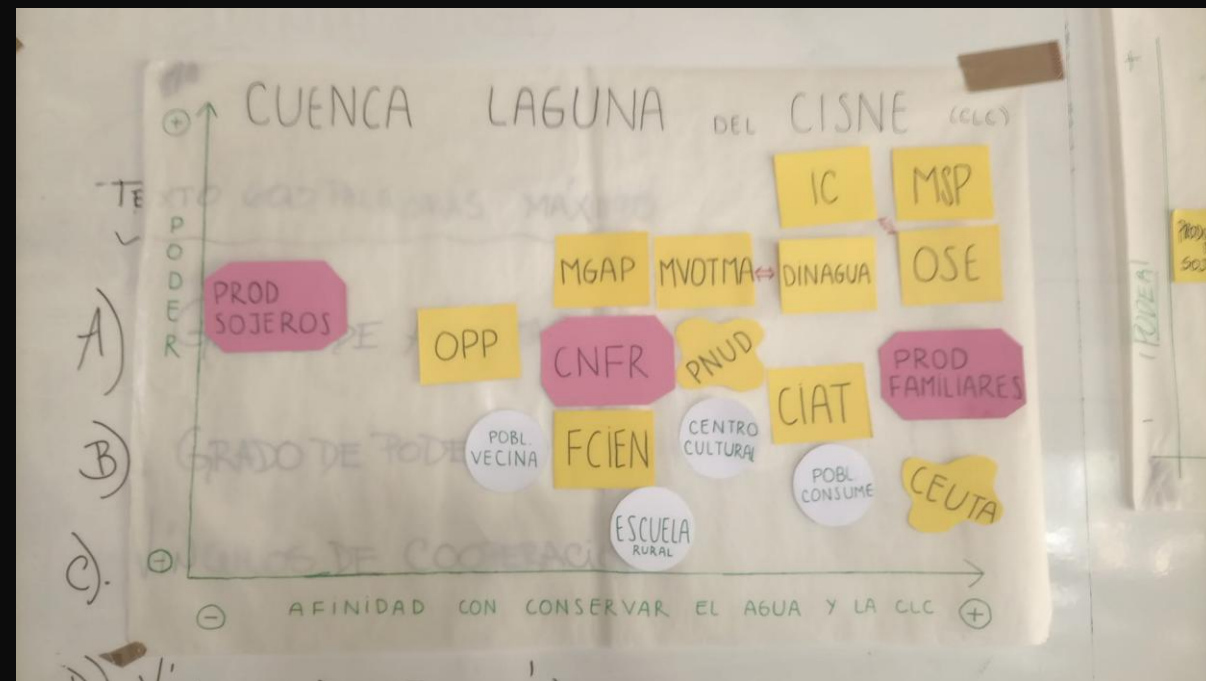 CUENCA LAGUNA DEL CISNE (CLC)
+
PODER
IC
MSP
MGAP
MVOTMA
DINAGUA
OSE
PROD
SOJEROS
OPP
CNFR
PNUD
PROD
FAMILIARES
CIAT
POBL.
VECINA
FCIEN
CENTRO
CULTURAL
POBL.
CONSUME
CEUTA
ESCUELA
RURAL
-
- AFINIDAD CON CONSERVAR EL AGUA Y LA CLC +
TEXTO
MÁXIMO
A)
DE
B) GRADO DE PODER
C). DE COOPERACI
(PODER)